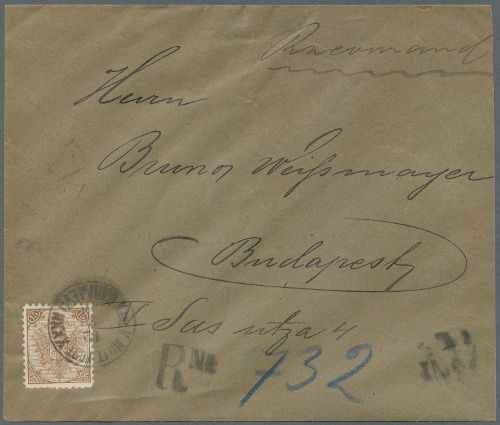 Recomand
Herrn
Bruno Weißmayer
Budapest
V Sas utza 4
RNo 732
15